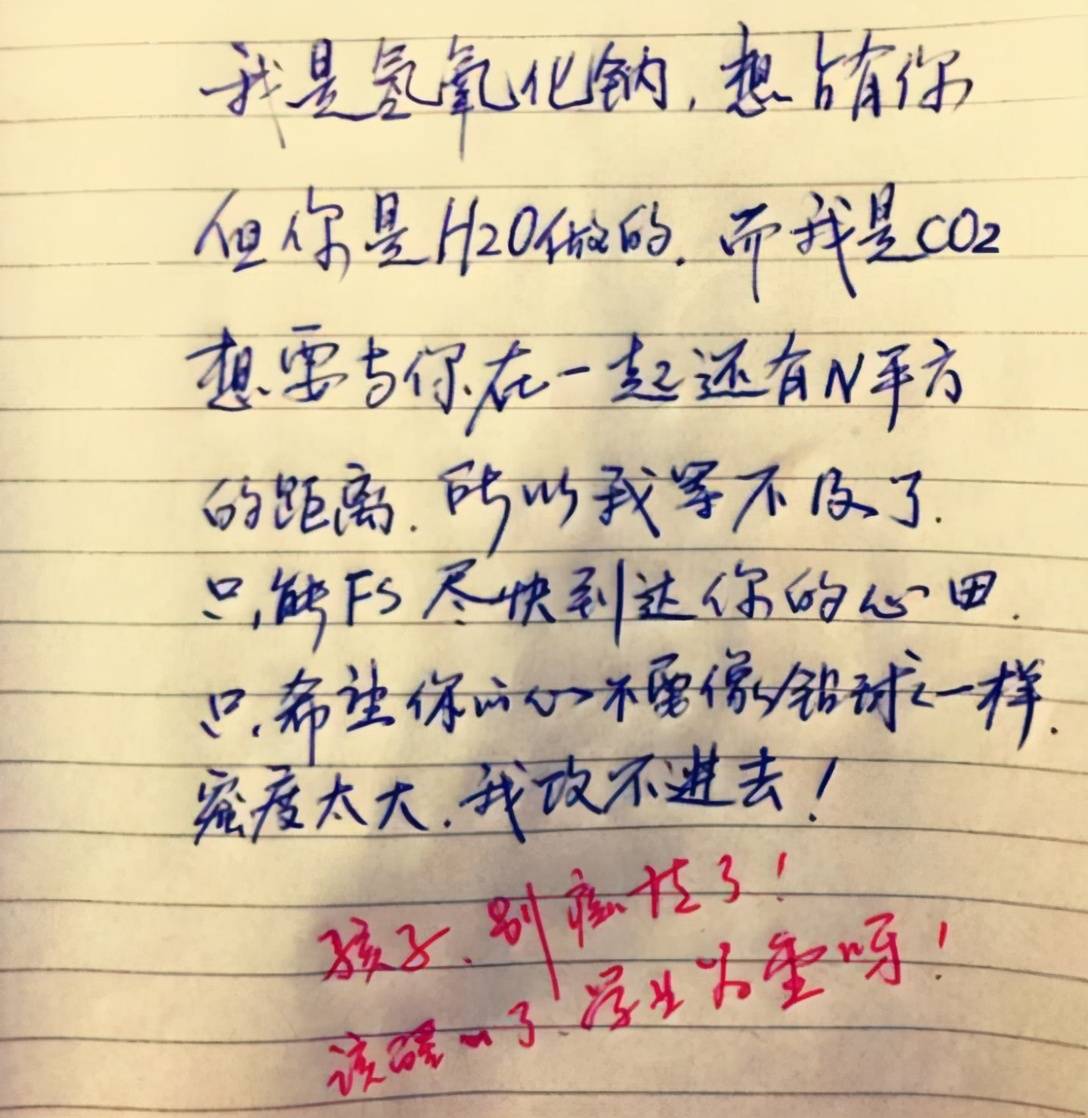 我是氢氧化钠,想占有你
但你是H2O做的.而我是CO2
想要与你在一起还有N平方
的距离.所以我等不及了.
只能FS尽快到达你的心田.
只希望你的心不要像铅球一样.
密度太大.我攻不进去!
孩子、别痴情了!
该醒了、学业为重呀!